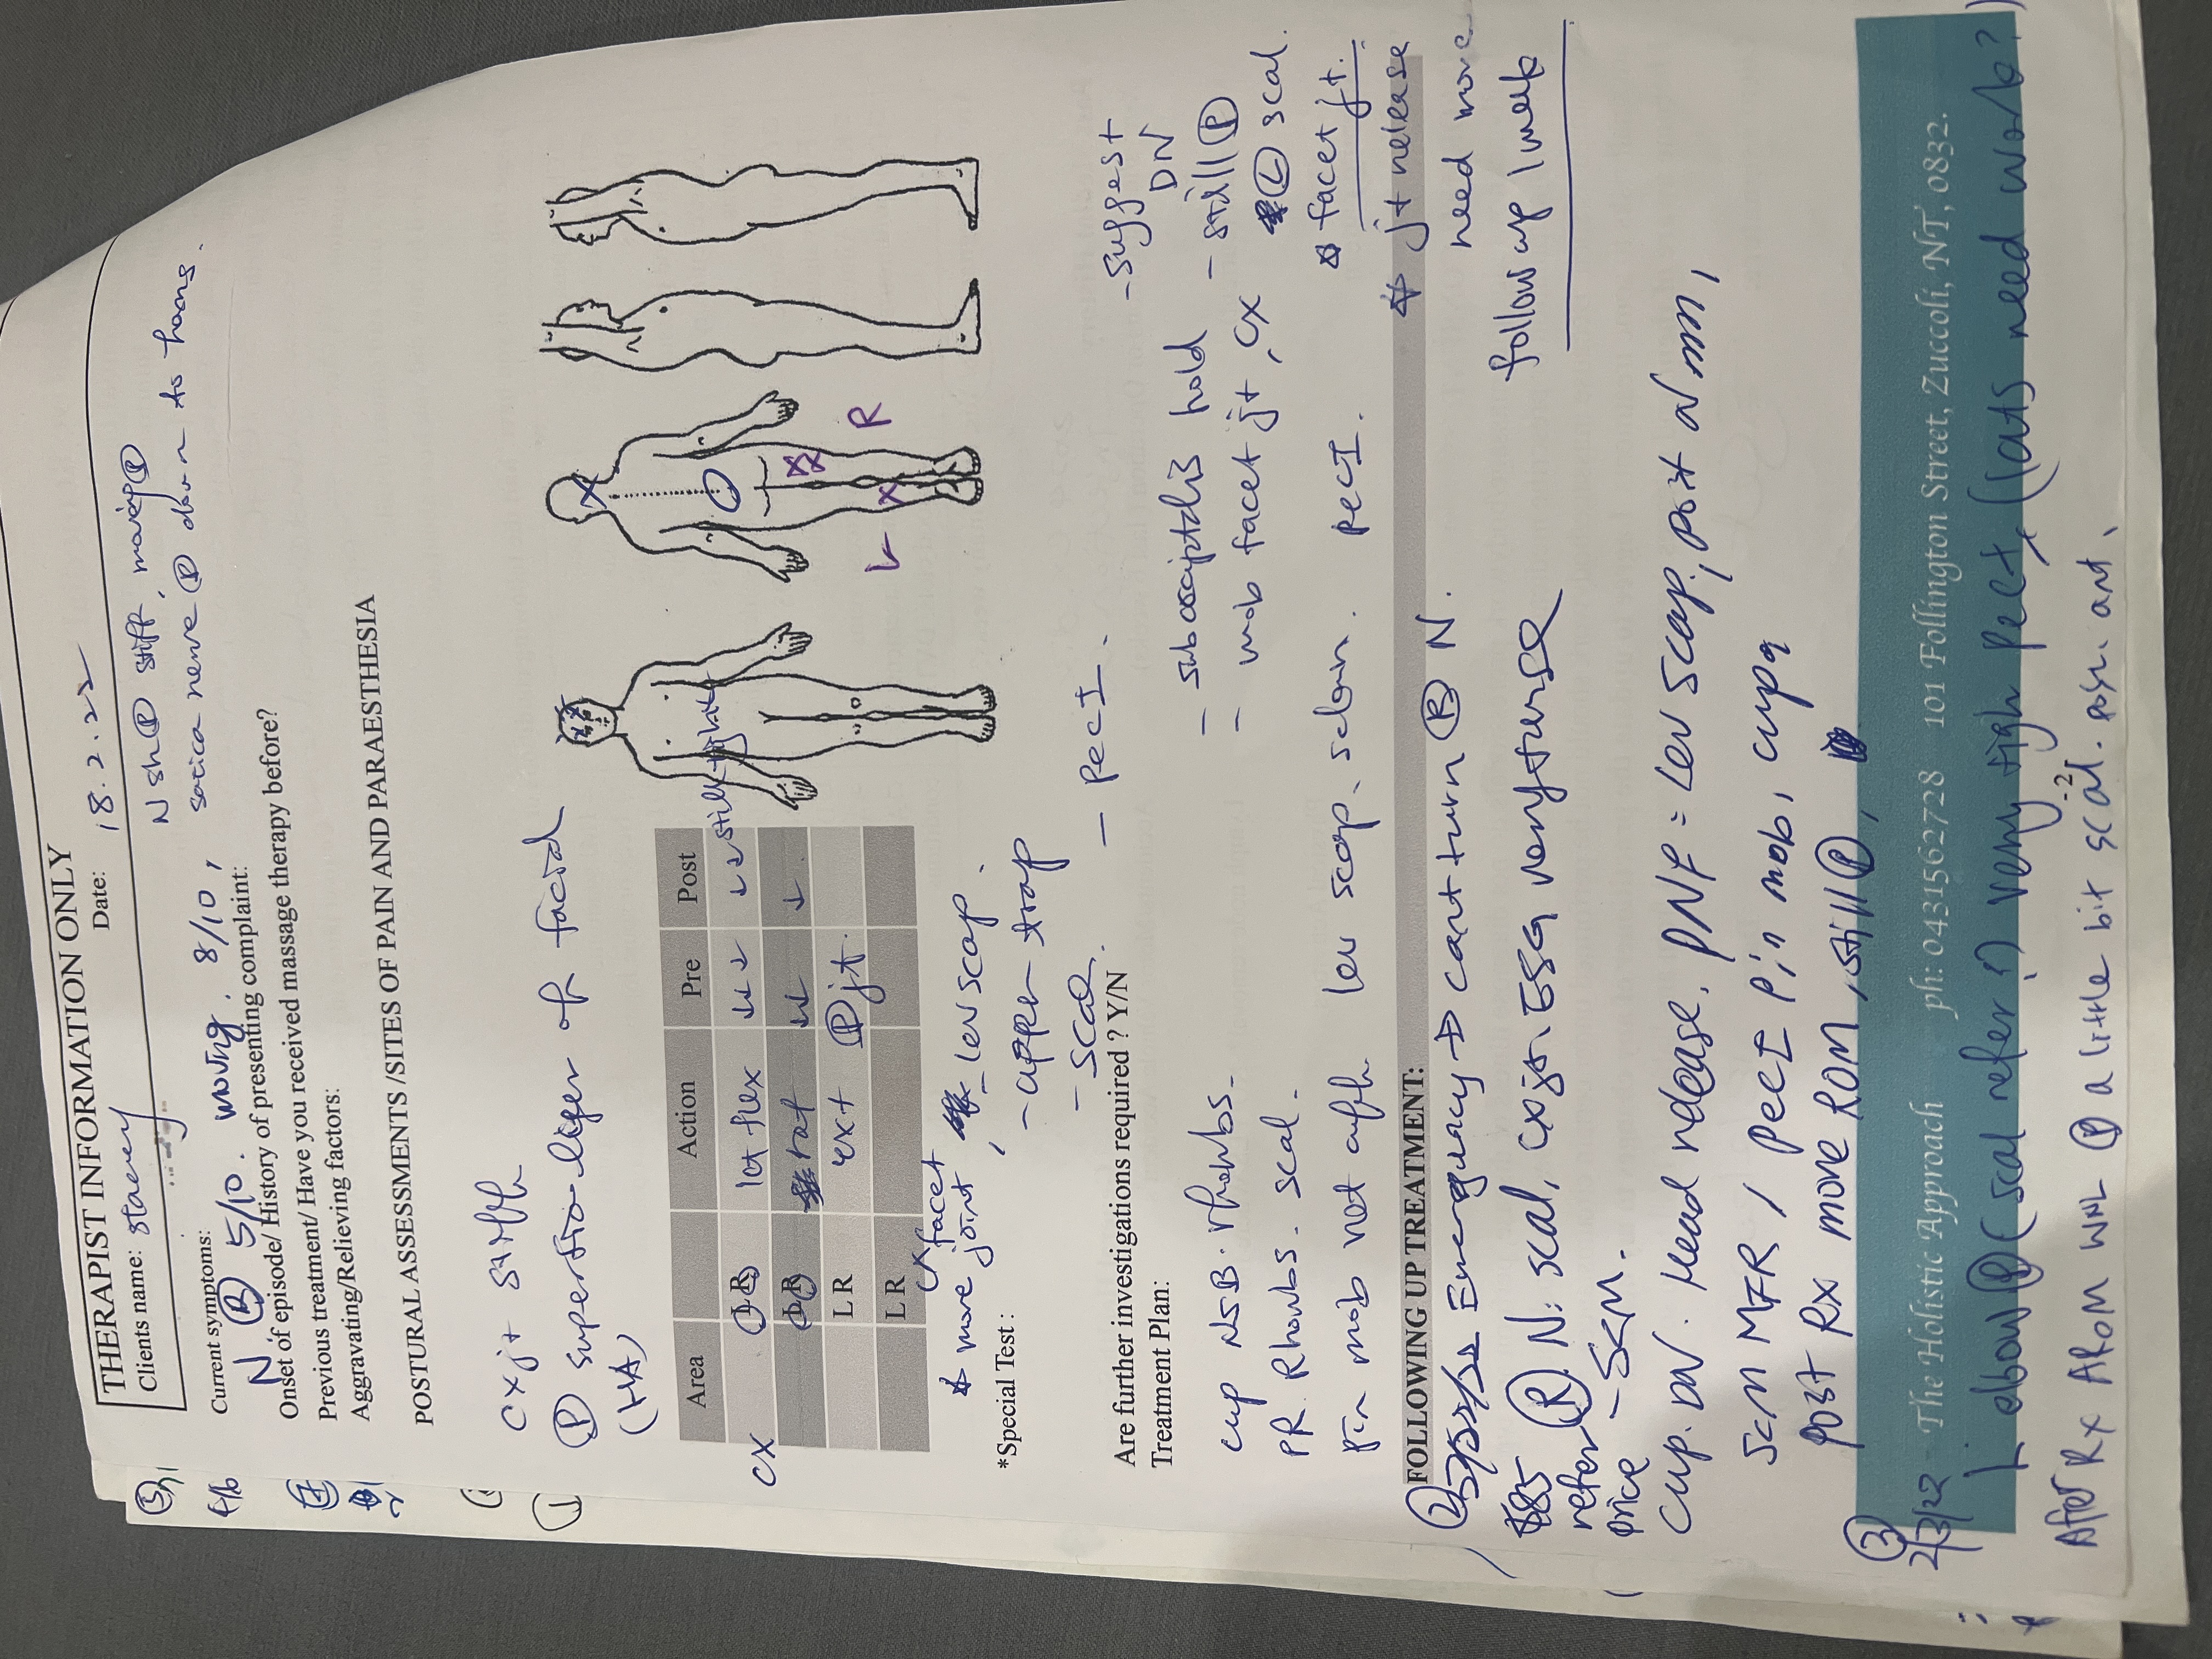 THERAPIST INFORMATION ONLY
Clients name: Stacey Date: 18.2.22
N sh Ⓟ stiff, moving Ⓟ
Current symptoms: satica nerve Ⓟ down to hams.
N Ⓑ 5/10. moving. 8/10,
Onset of episode/ History of presenting complaint:
Previous treatment/ Have you received massage therapy before?
Aggravating/Relieving factors:
POSTURAL ASSESSMENTS /SITES OF PAIN AND PARAESTHESIA
cx jt stiff
Ⓟ of facial
(HA)
L R
Area Action Pre Post
cx L R lat flex ↓↓ ↓ ↓↓ still tight
L R rot ↓↓ ↓
L R ext Ⓟ jt.
L R
cx facet
more joint, - lev scap.
- upper trap
- scal.
- Pec I.
*Special Test :
Are further investigations required ? Y/N
Treatment Plan:
- suggest
DN
cup NSB. rhombs.
- suboccipitalis hold
- still Ⓟ
PR. Rhombs. scal.
- mob facet jt, cx
Ⓛ scal.
pin mob not aff. lev scap. Pec I.
facet jt.
jt release
FOLLOWING UP TREATMENT:
need more
follow up 1 week
② cant turn Ⓑ N.
$85 Ⓡ N: scal, cx jt. ESG very tense
refer
price - SCM.
cup. DN. Head release. PNF = lev scap,
SCM MFR / Pec I Pin mob, cupq
post Rx move ROM, still Ⓟ,
③
2/3/22 - The Holistic Approach ph: 0431562728 101 Follington Street, Zuccoli, NT, 0832.
L elbow Ⓟ (scal refer?) very tigh Pect, (lats need work?)
-2-
After Rx AROM WNL Ⓟ a little bit scal.